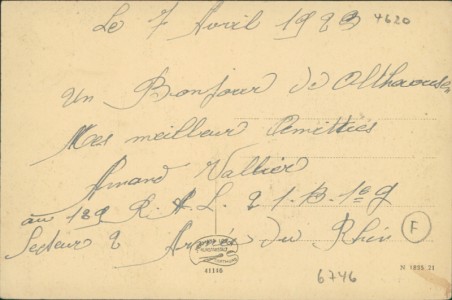 Le 7 Avril 1923 4620
Un Bonjour de Althausen
Mes meilleur Amitties
Armand Vallier
au 189 R. A. L. 2 1. B. 1e g
Secteur 2 Armée du Rhin F
41146
6746
N 1935/21